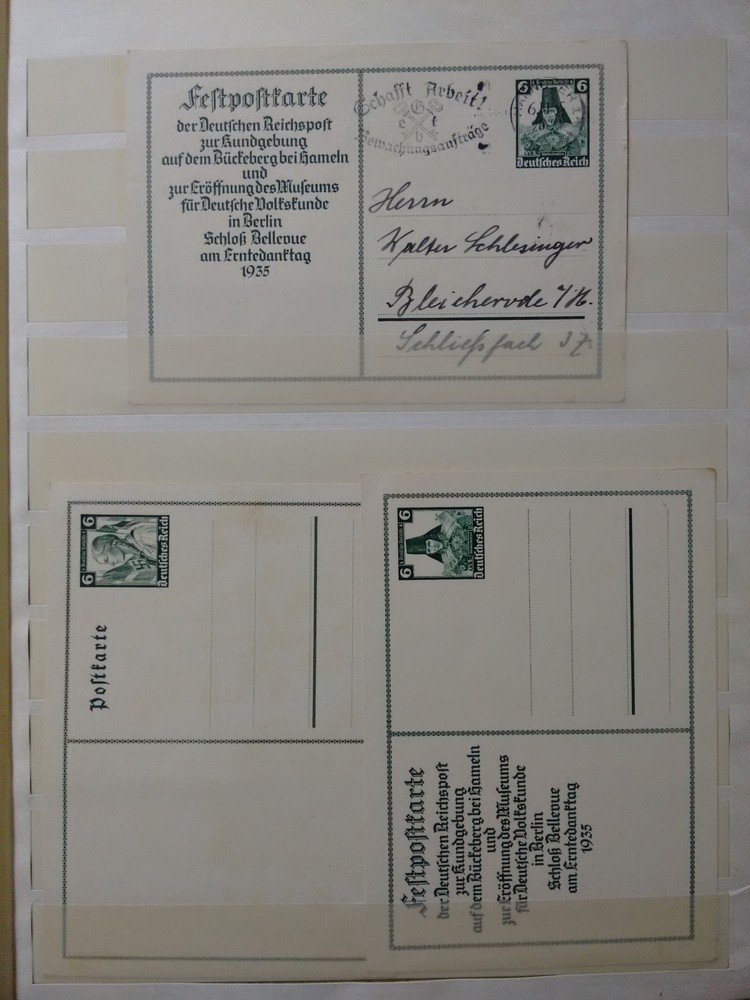 Festpostkarte
der Deutschen Reichspost
zur Kundgebung
auf dem Bückeberg bei Hameln
und
zur Eröffnung des Museums
für Deutsche Volkskunde
in Berlin
Schloß Bellevue
am Erntedanktag
1935
Schafft Arbeit!
Bewachungsaufträge
6 6
Deutsches Reich
Herrn
Walter Schlesinger
Bleicherode a/H.
Schließfach 37
6 6
Deutsches Reich
Postkarte
6 6
Deutsches Reich
Festpostkarte
der Deutschen Reichspost
zur Kundgebung
auf dem Bückeberg bei Hameln
und
zur Eröffnung des Museums
für Deutsche Volkskunde
in Berlin
Schloß Bellevue
am Erntedanktag
1935